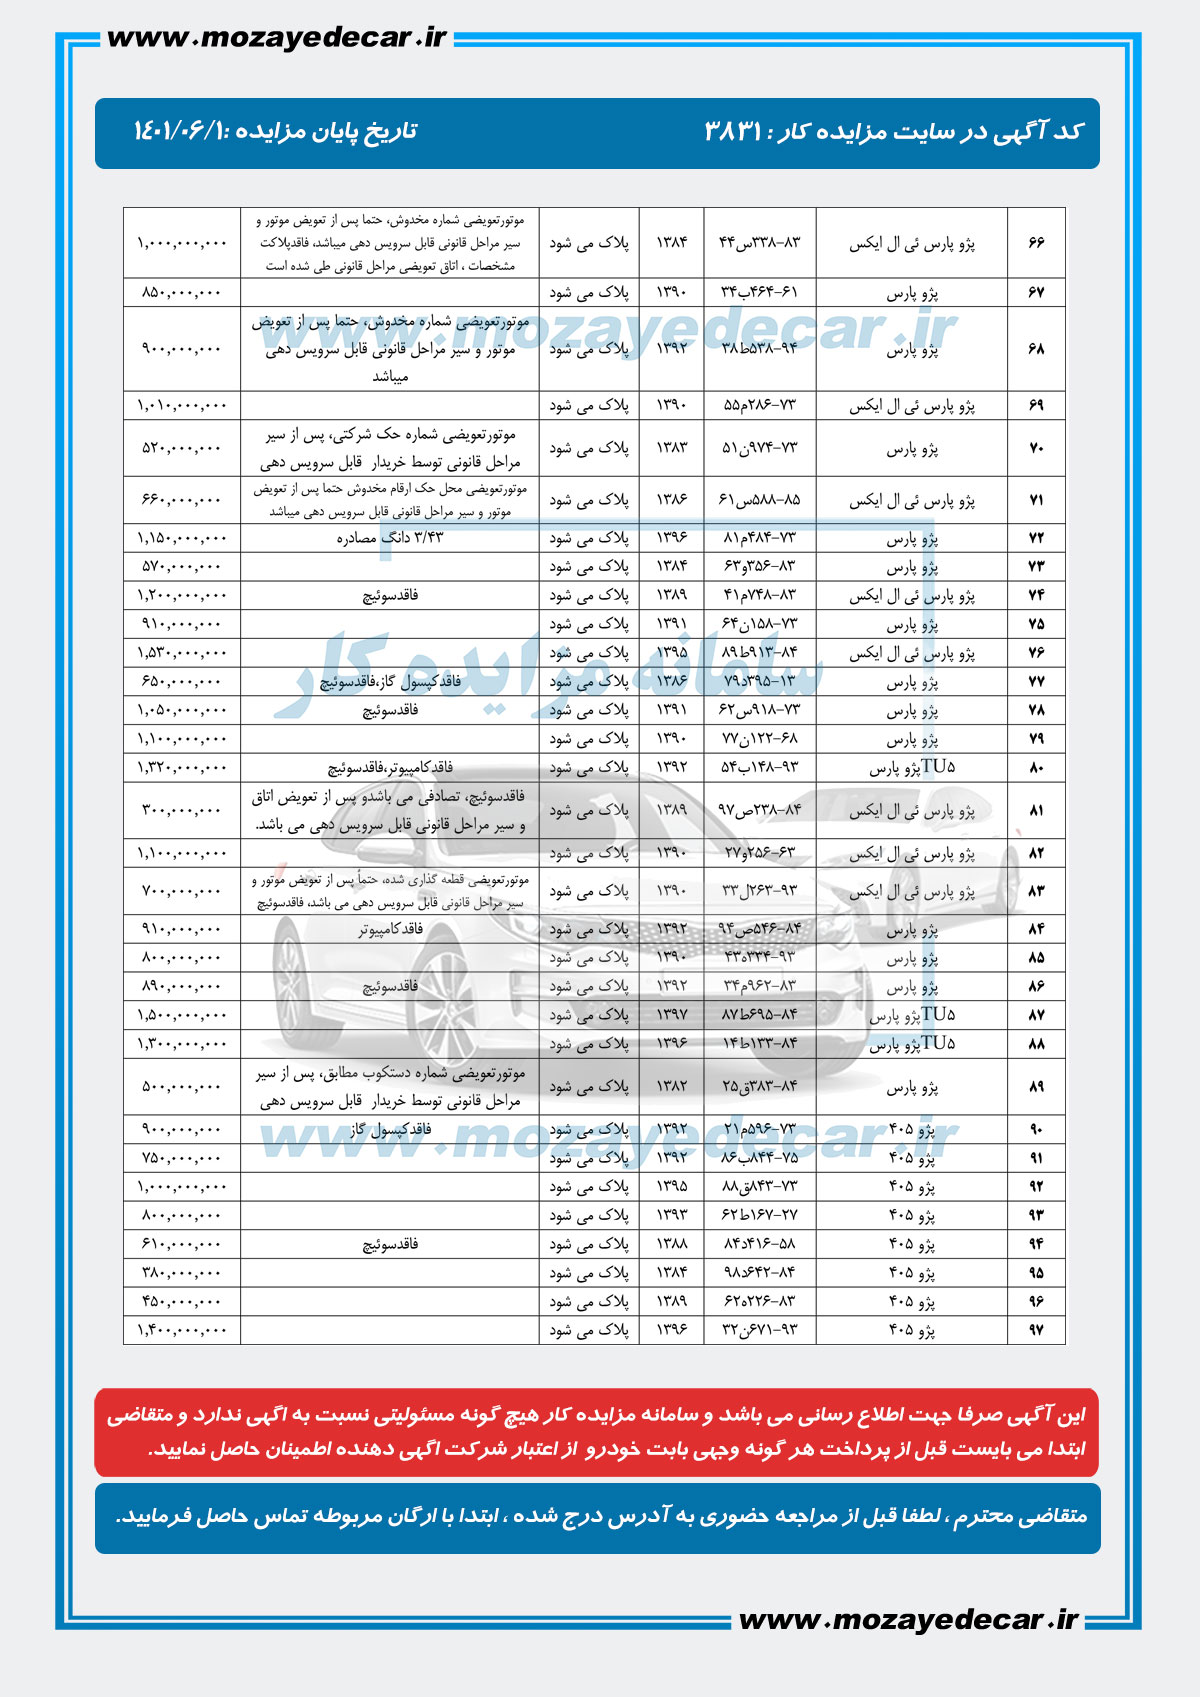 www.mozayedecar.ir
کد آگهی در سایت مزایده کار : ۳۸۳۱
تاریخ پایان مزایده :۱۴۰۱/۰۶/۱
۶۶ پژو پارس ئی ال ایکس ۸۳-۳۳۸س۴۴ ۱۳۸۴ پلاک می شود موتورتعویضی شماره مخدوش، حتما پس از تعویض موتور و ۱,۰۰۰,۰۰۰,۰۰۰
سیر مراحل قانونی قابل سرویس دهی میباشد، فاقدپلاکت
مشخصات ، اتاق تعویضی مراحل قانونی طی شده است
۶۷ پژو پارس ۶۱-۴۶۴ب۳۴ ۱۳۹۰ پلاک می شود ۸۵۰,۰۰۰,۰۰۰
www.mozayedecar.ir
۶۸ پژو پارس ۹۴-۵۳۸ط۳۸ ۱۳۹۲ پلاک می شود موتورتعویضی شماره مخدوش، حتما پس از تعویض ۹۰۰,۰۰۰,۰۰۰
موتور و سیر مراحل قانونی قابل سرویس دهی
میباشد
۶۹ پژو پارس ئی ال ایکس ۷۳-۲۸۶م۵۵ ۱۳۹۰ پلاک می شود ۱,۰۱۰,۰۰۰,۰۰۰
۷۰ پژو پارس ۷۳-۹۷۴ن۵۱ ۱۳۸۳ پلاک می شود موتورتعویضی شماره حک شرکتی، پس از سیر ۵۲۰,۰۰۰,۰۰۰
مراحل قانونی توسط خریدار قابل سرویس دهی
۷۱ پژو پارس ئی ال ایکس ۸۵-۵۸۸س۶۱ ۱۳۸۶ پلاک می شود موتورتعویضی محل حک ارقام مخدوش حتما پس از تعویض ۶۶۰,۰۰۰,۰۰۰
موتور و سیر مراحل قانونی قابل سرویس دهی میباشد
۷۲ پژو پارس ۷۳-۴۸۴م۸۱ ۱۳۹۶ پلاک می شود ۳/۴۳ دانگ مصادره ۱,۱۵۰,۰۰۰,۰۰۰
۷۳ پژو پارس ۸۳-۳۵۶و۶۳ ۱۳۸۴ پلاک می شود ۵۷۰,۰۰۰,۰۰۰
۷۴ پژو پارس ئی ال ایکس ۸۳-۷۴۸م۴۱ ۱۳۸۹ پلاک می شود فاقدسوئیچ ۱,۲۰۰,۰۰۰,۰۰۰
۷۵ پژو پارس ۷۳-۱۵۸ن۶۴ ۱۳۹۱ پلاک می شود ۹۱۰,۰۰۰,۰۰۰
۷۶ پژو پارس ئی ال ایکس ۸۴-۹۱۳ط۸۹ ۱۳۹۵ پلاک می شود ۱,۵۳۰,۰۰۰,۰۰۰
سامانه مزایده کار
۷۷ پژو پارس ۱۳-۳۹۵د۷۹ ۱۳۸۶ پلاک می شود فاقدکپسول گاز،فاقدسوئیچ ۶۵۰,۰۰۰,۰۰۰
۷۸ پژو پارس ۷۳-۹۱۸س۶۲ ۱۳۹۱ پلاک می شود فاقدسوئیچ ۱,۰۵۰,۰۰۰,۰۰۰
۷۹ پژو پارس ۶۸-۱۲۲ن۷۷ ۱۳۹۰ پلاک می شود ۱,۱۰۰,۰۰۰,۰۰۰
۸۰ TU۵پژو پارس ۹۳-۱۴۸ب۵۴ ۱۳۹۲ پلاک می شود فاقدکامپیوتر،فاقدسوئیچ ۱,۳۲۰,۰۰۰,۰۰۰
۸۱ پژو پارس ئی ال ایکس ۸۴-۲۳۸ص۹۷ ۱۳۸۹ پلاک می شود فاقدسوئیچ، تصادفی می باشدو پس از تعویض اتاق ۳۰۰,۰۰۰,۰۰۰
و سیر مراحل قانونی قابل سرویس دهی می باشد.
۸۲ پژو پارس ئی ال ایکس ۶۳-۲۵۶و۲۷ ۱۳۹۰ پلاک می شود ۱,۱۰۰,۰۰۰,۰۰۰
۸۳ پژو پارس ئی ال ایکس ۹۳-۲۶۳ل۳۳ ۱۳۹۰ پلاک می شود موتورتعویضی قطعه گذاری شده، حتماً پس از تعویض موتور و ۷۰۰,۰۰۰,۰۰۰
سیر مراحل قانونی قابل سرویس دهی می باشد، فاقدسوئیچ
۸۴ پژو پارس ۸۴-۵۴۶ص۹۴ ۱۳۹۲ پلاک می شود فاقدکامپیوتر ۹۱۰,۰۰۰,۰۰۰
۸۵ پژو پارس ۹۳-۳۳۴ه۴۳ ۱۳۹۰ پلاک می شود ۸۰۰,۰۰۰,۰۰۰
۸۶ پژو پارس ۸۳-۹۶۲م۳۴ ۱۳۹۲ پلاک می شود فاقدسوئیچ ۸۹۰,۰۰۰,۰۰۰
۸۷ TU۵پژو پارس ۸۴-۶۹۵ط۸۷ ۱۳۹۷ پلاک می شود ۱,۵۰۰,۰۰۰,۰۰۰
۸۸ TU۵پژو پارس ۸۴-۱۳۳ط۱۴ ۱۳۹۶ پلاک می شود ۱,۳۰۰,۰۰۰,۰۰۰
۸۹ پژو پارس ۸۴-۳۸۳ق۲۵ ۱۳۸۲ پلاک می شود موتورتعویضی شماره دستکوب مطابق، پس از سیر ۵۰۰,۰۰۰,۰۰۰
مراحل قانونی توسط خریدار قابل سرویس دهی
۹۰ پژو ۴۰۵ ۷۳-۵۹۶م۲۱ ۱۳۹۲ پلاک می شود فاقدکپسول گاز ۹۰۰,۰۰۰,۰۰۰
www.mozayedecar.ir
۹۱ پژو ۴۰۵ ۷۵-۸۴۴ب۸۶ ۱۳۹۲ پلاک می شود ۷۵۰,۰۰۰,۰۰۰
۹۲ پژو ۴۰۵ ۷۳-۸۴۳ق۸۸ ۱۳۹۵ پلاک می شود ۱,۰۰۰,۰۰۰,۰۰۰
۹۳ پژو ۴۰۵ ۲۷-۱۶۷ط۶۲ ۱۳۹۳ پلاک می شود ۸۰۰,۰۰۰,۰۰۰
۹۴ پژو ۴۰۵ ۵۸-۴۱۶د۸۴ ۱۳۸۸ پلاک می شود فاقدسوئیچ ۶۱۰,۰۰۰,۰۰۰
۹۵ پژو ۴۰۵ ۸۴-۶۴۲د۹۸ ۱۳۸۴ پلاک می شود ۳۸۰,۰۰۰,۰۰۰
۹۶ پژو ۴۰۵ ۸۳-۲۲۶ه۶۲ ۱۳۸۹ پلاک می شود ۴۵۰,۰۰۰,۰۰۰
۹۷ پژو ۴۰۵ ۹۳-۶۷۱ن۳۲ ۱۳۹۶ پلاک می شود ۱,۴۰۰,۰۰۰,۰۰۰
این آگهی صرفا جهت اطلاع رسانی می باشد و سامانه مزایده کار هیچ گونه مسئولیتی نسبت به اگهی ندارد و متقاضی
ابتدا می بایست قبل از پرداخت هر گونه وجهی بابت خودرو از اعتبار شرکت اگهی دهنده اطمینان حاصل نمایید.
متقاضی محترم ، لطفا قبل از مراجعه حضوری به آدرس درج شده ، ابتدا با ارگان مربوطه تماس حاصل فرمایید.
www.mozayedecar.ir